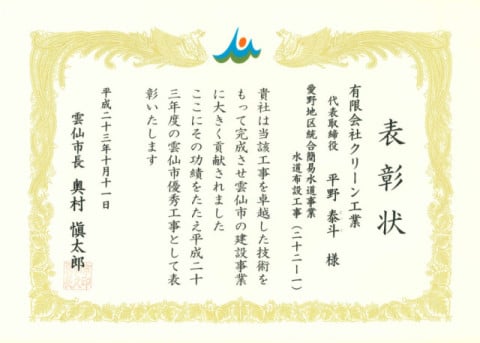 表彰状
有限会社クリーン工業
代表取締役 平野 泰斗 様
愛野地区統合簡易水道事業
水道布設工事(二十二-一)
貴社は当該工事を卓越した技術を
もって完成させ雲仙市の建設事業
に大きく貢献されました
ここにその功績をたたえ平成二十
三年度の雲仙市優秀工事として表
彰いたします
平成二十三年十月十一日
雲仙市長 奥村 愼太郎